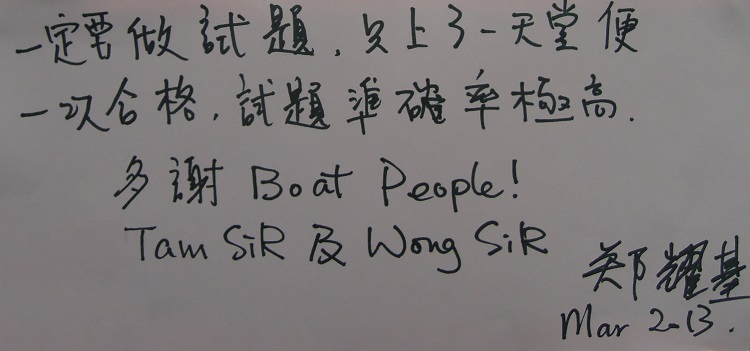 一定要做試題，只上了一天堂便
一次合格，試題準確率極高.
多謝 Boat People!
Tam SiR 及 Wong SiR
鄭耀基
Mar 2-13.